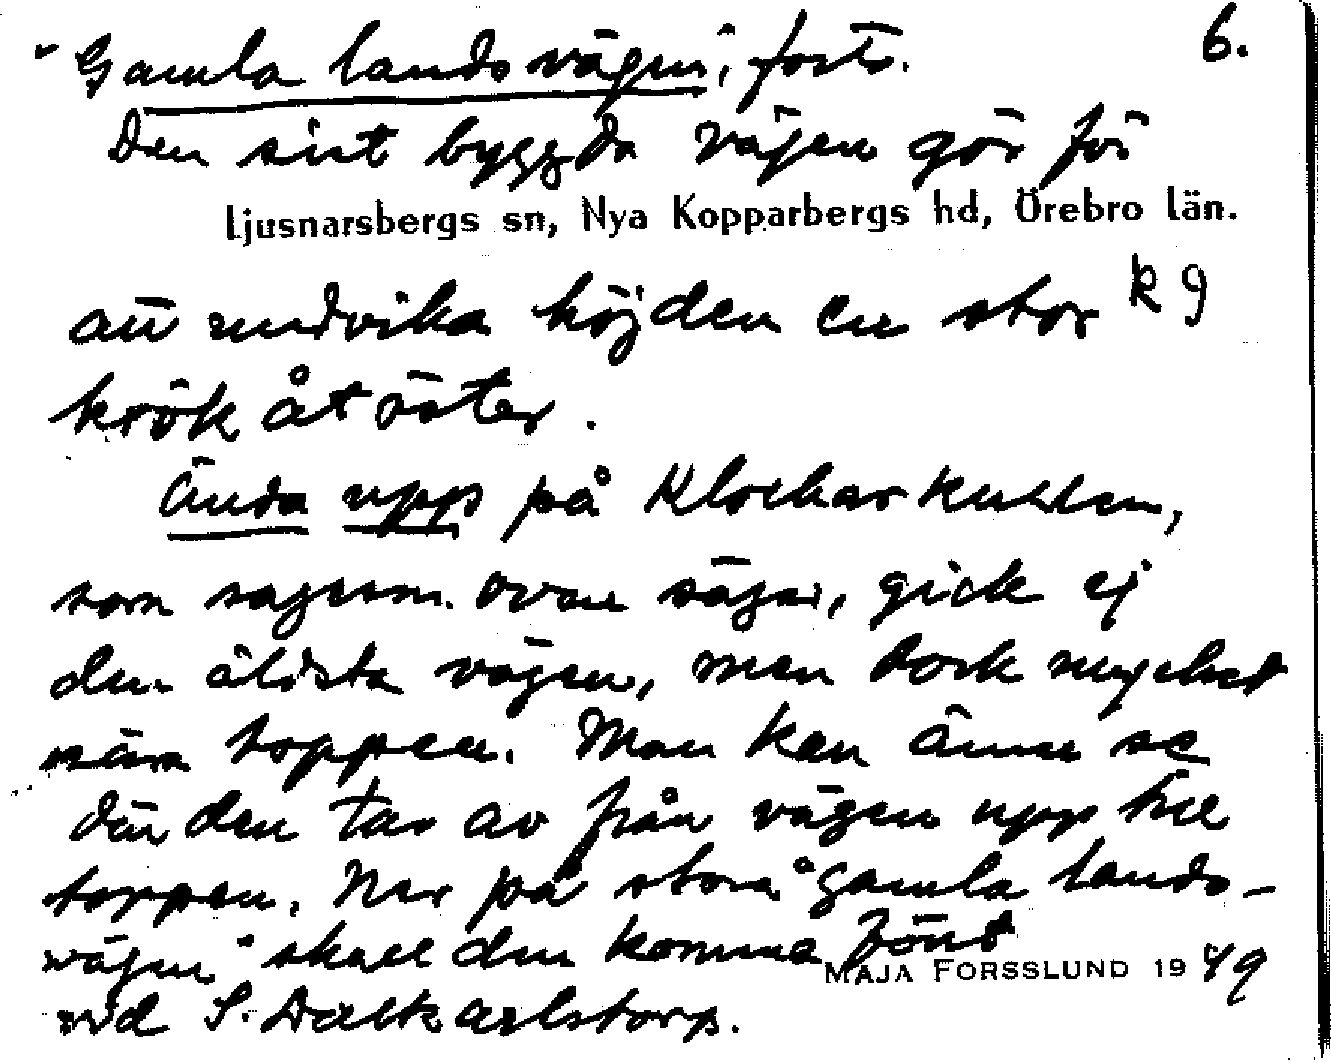 "Gamla landsvägen", forts. 6.
Den sist byggda vägen gör för
Ljusnarsbergs sn, Nya Kopparbergs hd, Örebro län.
att undvika höjden en stor k 9
krök åt öster.
Ända upp på Klockarkullen,
som sagesm. ovan säger, gick ej
den äldsta vägen, men dock mycket
nära toppen. Man kan ännu se
där den tar av från vägen upp till
toppen. Ner på stora "gamla lands-
vägen" skall den komma först
MAJA FORSSLUND 1949
vid S. Dalkarlstorp.